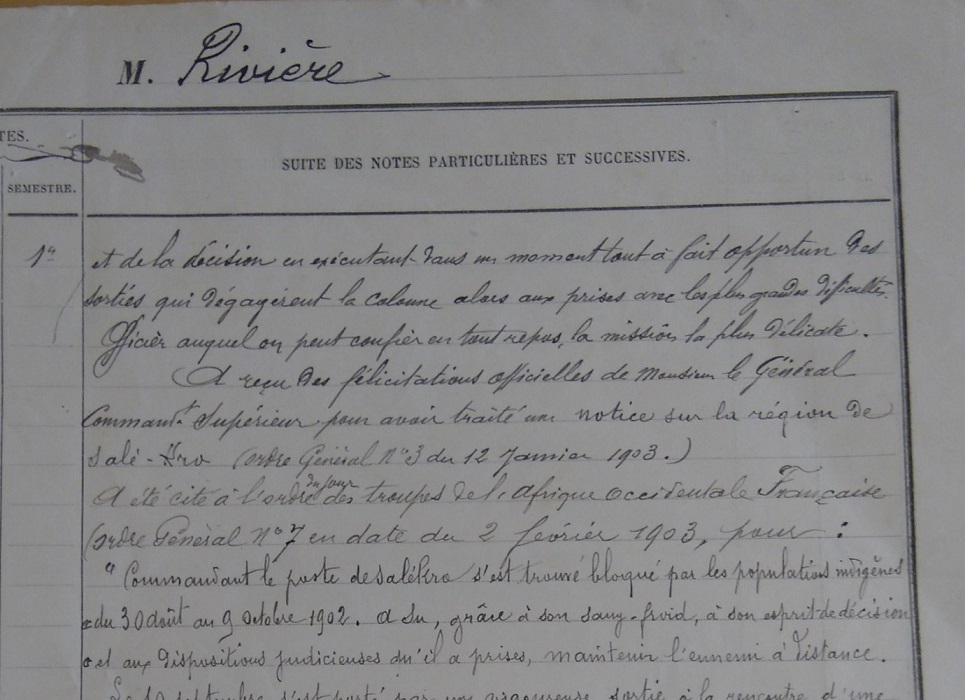 M. Rivière
TES.
SUITE DES NOTES PARTICULIÈRES ET SUCCESSIVES.
SEMESTRE.
1er
et de la décision en exécutant dans un moment tout à fait opportun des
sorties qui dégagèrent la colonne alors aux prises avec les plus grandes difficultés.
Officier auquel on peut confier en tout repos, la mission la plus délicate.
A reçu des félicitations officielles de Monsieur le Général
Command.t Supérieur pour avoir traité une notice sur la région de
Salé-Kro (ordre Général N° 3 du 12 Janvier 1903.)
A été cité à l'ordre du jour des troupes de l'Afrique Occidentale Française
(ordre Général N° 7 en date du 2 février 1903, pour :
"Commandant le poste de Salékro s'est trouvé bloqué par les populations indigènes
du 30 août au 9 Octobre 1902. a su, grâce à son sang-froid, à son esprit de décision
et aux dispositions judicieuses qu'il a prises, maintenir l'ennemi à distance.
Le 10 septembre s'est porté par une vigoureuse sortie à la rencontre d'une